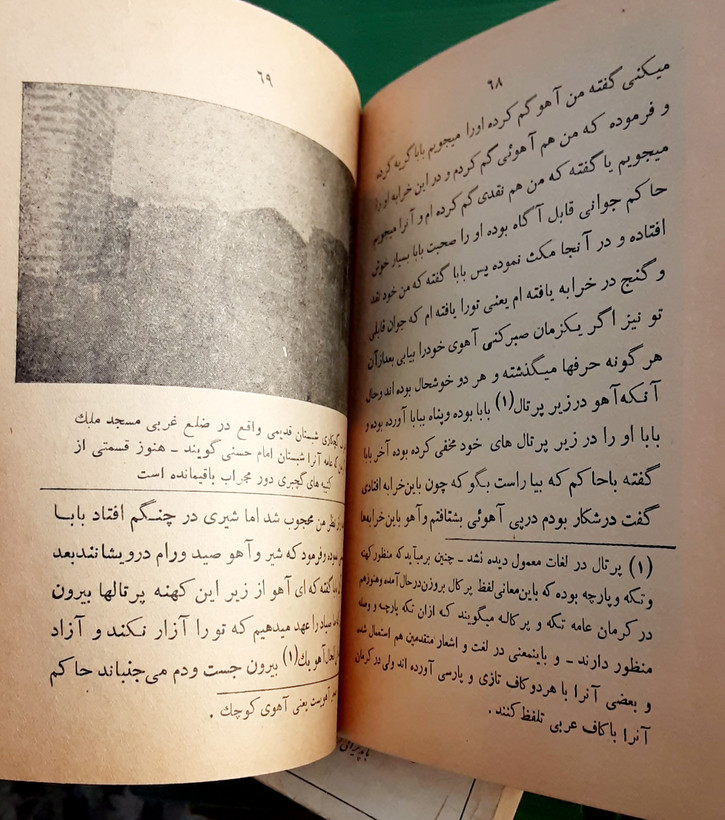 ۶۸
میکنی گفته من آهو گم کرده اورا میجویم بابا گریه کرده
و فرموده که من هم آهوئی گم کردم و در این خرابه او را
میجویم یا گفته که من هم نقدی گم کرده ام و آنرا میجویم
حاکم جوانی قابل آگاه بوده او را صحبت بابا بسیار خوش
افتاده و در آنجا مکث نموده پس بابا گفته که من خود نقد
و گنج در خرابه یافته ام یعنی تورا یافته ام که جوان قابلی
تو نیز اگر یکزمان صبرکنی آهوی خودرا بیابی بعدازآن
هر گونه حرفها میگذشته و هر دو خوشحال بوده اند وحال
آنکه آهو درزیر پرتال(۱) بابا بوده وپناه ببابا آورده بوده و
بابا او را در زیر پرتال های خود مخفی کرده بوده آخر بابا
گفته باحاکم که بیا راست بگو که چون باین خرابه افتادی
گفت درشکار بودم درپی آهوئی بشتافتم وآهو باین خرابه‌ها
(۱) پرتال در لغات معمول دیده نشد ـ چنین برمیآید که منظور کهنه
وتکه وپارچه بوده که باین معانی لفظ پرکال بروزن درحال آمده وهنوزهم
در کرمان عامه تکه و پرکاله میگویند که ازان تکه پارچه و وصله
منظور دارند ـ و باینمعنی در لغت و اشعار متقدمین هم استعمال شده
و بعضی آنرا با هردوکاف تازی و پارسی آورده اند ولی در کرمان
آنرا باکاف عربی تلفظ کنند .
۶۹
گچکاری شبستان قدیمی واقع در ضلع غربی مسجد ملک
که عامه آنرا شبستان امام حسنی گویند ـ هنوز قسمتی از
کتیبه های گچبری دور محراب باقیمانده است
از نظر من محجوب شد اما شیری در چنگم افتاد بابا
وفرمود که شیر وآهو صید ورام درویشانندبعد
گفته که ای آهو از زیر این کهنه پرتالها بیرون
صیاد را عهد میدهیم که تورا آزار نکند و آزاد
آهوبك(۱) بیرون جست ودم می‌جنباند حاکم
آهوست یعنی آهوی کوچك .